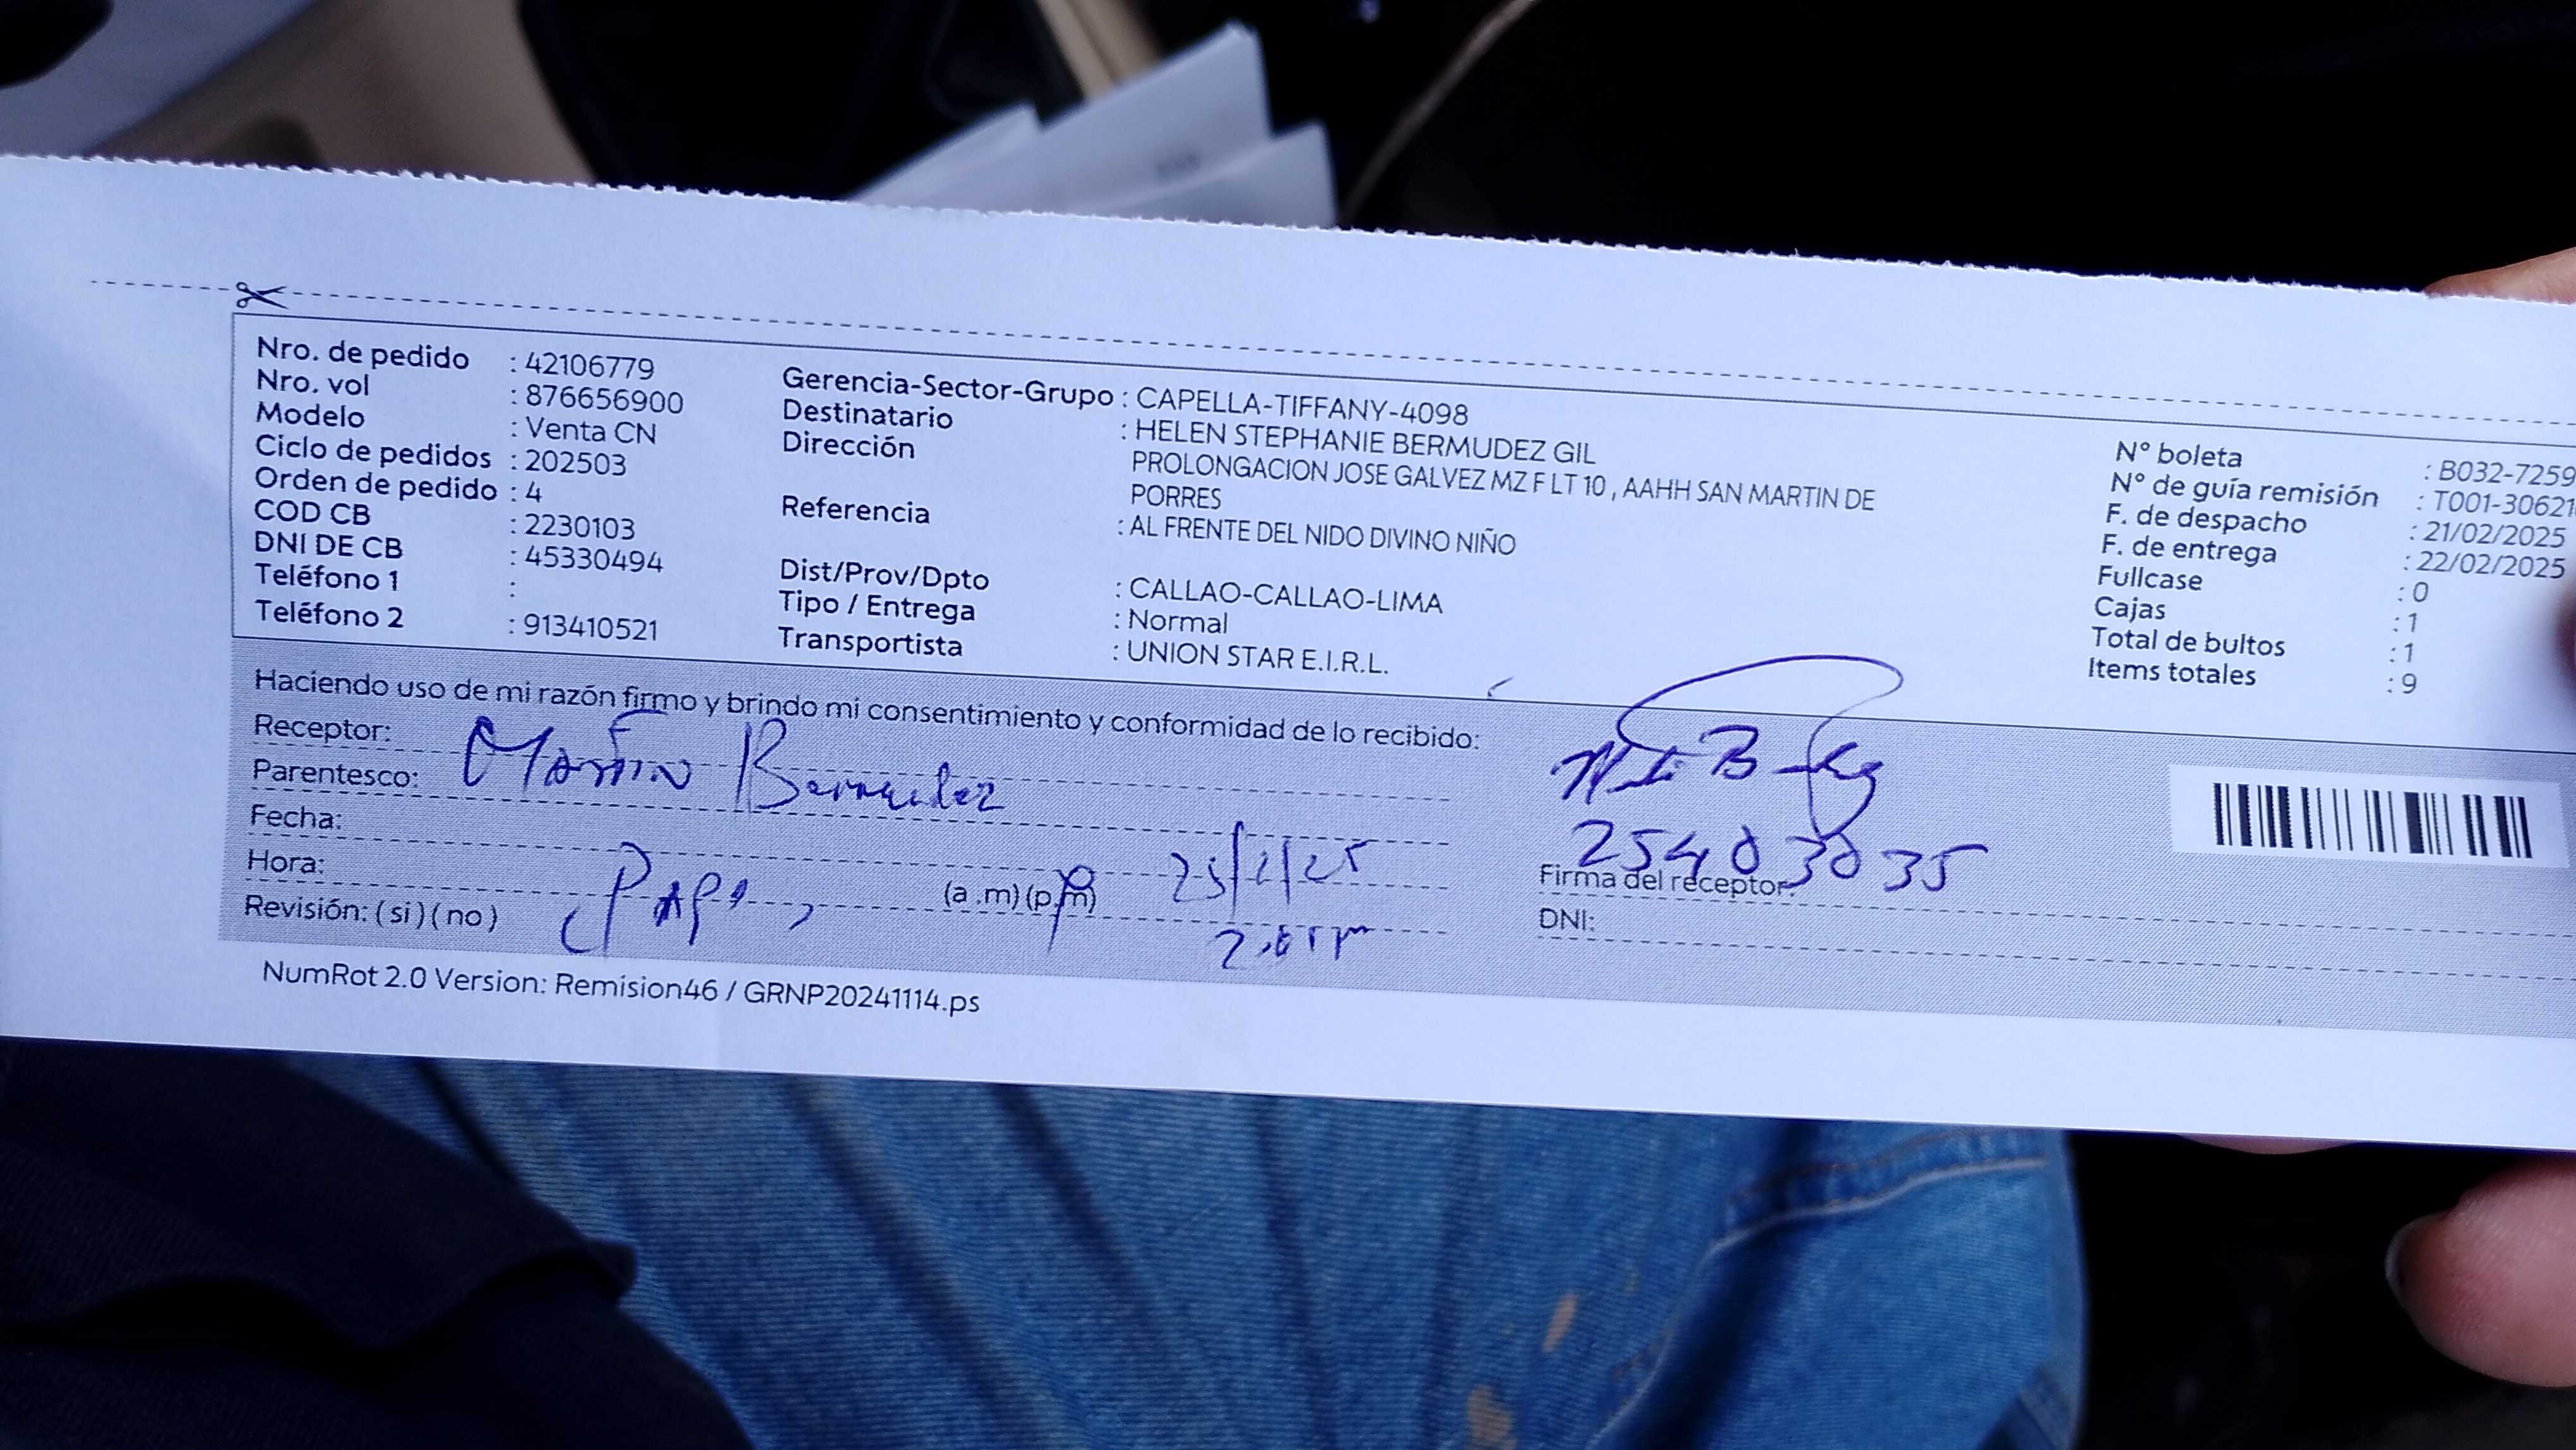 Nro. de pedido : 42106779
Nro. vol : 876656900
Modelo : Venta CN
Ciclo de pedidos : 202503
Orden de pedido : 4
COD CB : 2230103
DNI DE CB : 45330494
Teléfono 1 :
Teléfono 2 : 913410521
Gerencia-Sector-Grupo : CAPELLA-TIFFANY-4098
Destinatario : HELEN STEPHANIE BERMUDEZ GIL
Dirección PROLONGACION JOSE GALVEZ MZ F LT 10 , AAHH SAN MARTIN DE
PORRES
Referencia : AL FRENTE DEL NIDO DIVINO NIÑO
Dist/Prov/Dpto : CALLAO-CALLAO-LIMA
Tipo / Entrega : Normal
Transportista : UNION STAR E.I.R.L.
N° boleta : B032-7259
N° de guía remisión : T001-30621
F. de despacho : 21/02/2025
F. de entrega : 22/02/2025
Fullcase : 0
Cajas : 1
Total de bultos : 1
Items totales : 9
Haciendo uso de mi razón firmo y brindo mi consentimiento y conformidad de lo recibido:
Receptor: Martin Bermudez
Parentesco:
Fecha:
Hora: Papa (a .m) (p.m)
Revisión: ( si ) ( no )
25403035
Firma del receptor:
DNI:
NumRot 2.0 Version: Remision46 / GRNP20241114.ps